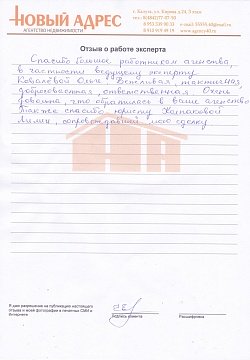 НОВЫЙ АДРЕС
АГЕНТСТВО НЕДВИЖИМОСТИ
г. Калуга, ул. Кирова д.23, 3 этаж
Отзыв о работе эксперта
Спасибо большое работникам агенства,
в частности ведущему эксперту
Ковалёвой Ольге. Вежливая, тактичная,
добросовестная, ответственная. Очень
довольна, что обратилась в ваше агенство
Также спасибо юристу
Лилии, сопровождавшей мою сделку
Я даю разрешение на публикацию настоящего
отзыва и моей фотографии в печатных СМИ и
Интернете
подпись клиента
Расшифровка